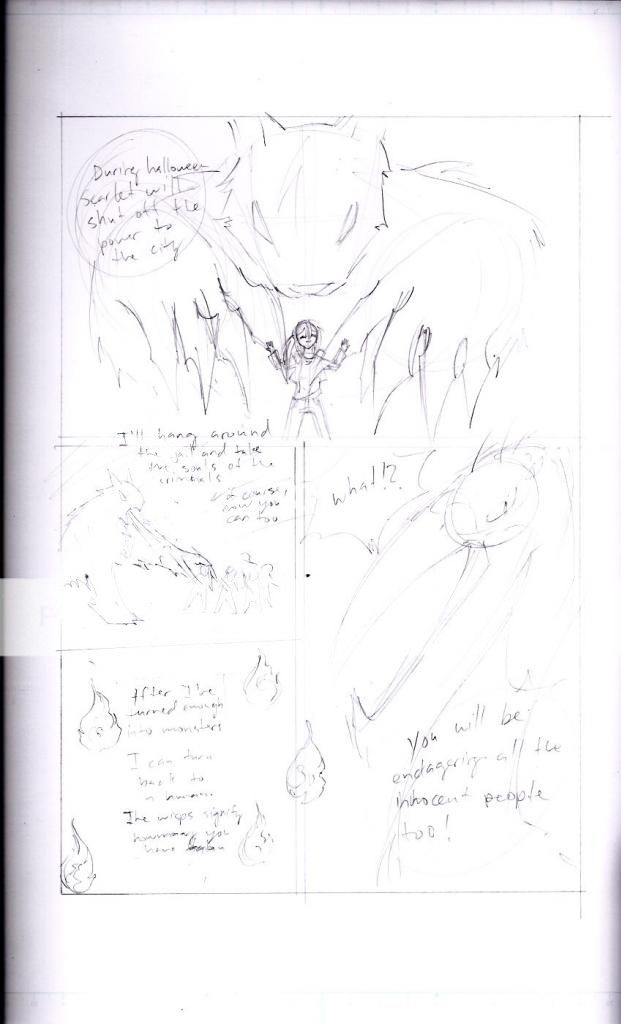 During halloween
Scarlet will
shut off the
power to
the city
I'll hang around
the jail and take
the souls of the
criminals
of course,
now you
can too
what!?
After I've
turned enough
into monsters
I can turn
back to
a human.
The wisps signify
how many you
have
You will be
endagering all the
innocent people
too!